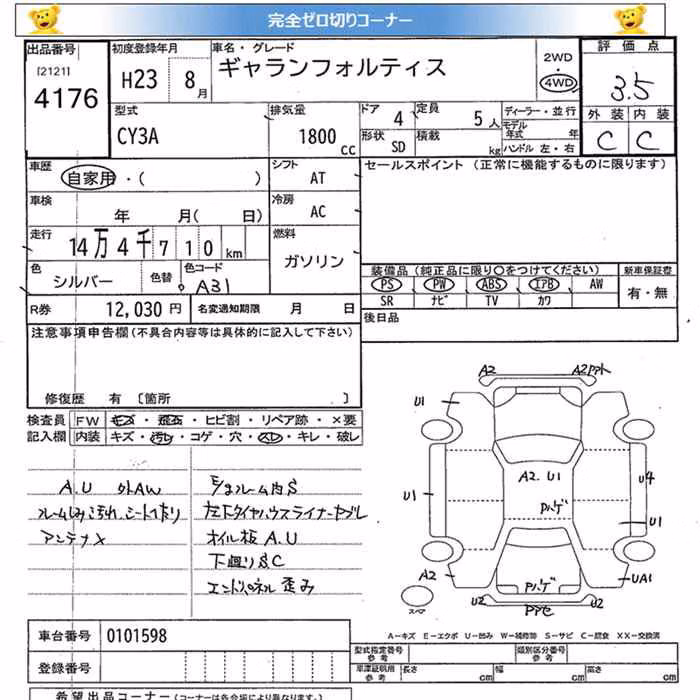 完全ゼロ切りコーナー
出品番号
[2121]
4176
初度登録年月
H23 8月
車名・グレード
ギャランフォルティス
2WD
・
4WD
評価点
3.5
外装 内装
C C
型式
CY3A
排気量
1800 cc
ドア 4
定員 5 人
形状 SD
積載 kg
ディーラー・並行
モデル年式 年
ハンドル 左・右
車歴
自家用・( )
シフト AT
車検
年 月( 日)
冷房 AC
走行
14万4千710km
燃料
ガソリン
色 シルバー
色替
色コード
A31
R券 12,030 円
名変通知期限 月 日
セールスポイント (正常に機能するものに限ります)
装備品 (純正品に限り○をつけてください)
PS PW ABS エアB AW
SR ナビ TV カワ
新車保証書
有・無
後日品
注意事項申告欄(不具合内容等は具体的に記入して下さい)
修復歴 有 〔箇所 〕
検査員
記入欄
FW キズ・飛石・ヒビ割・リペア跡・×要
内装 キズ・汚レ・コゲ・穴・スレ・キレ・破レ
A.U 外AW
アンテナX
左下タイヤハウスライナーヤブレ
オイル板 A.U
下廻りS.C
エンドパネル 歪み
A2
U1
U1
A2
U2
A2
U1
U4
U1
UA1
U2
A2. U1
Pハゲ
Pハゲ
スペア
A−キズ E−エクボ U−凹み W−補修跡 S−サビ C−腐食 XX−交換済
車台番号 0101598
登録番号
型式指定番号
参考
類別区分番号
参考
車庫証明用
参考
長さ cm
幅 cm
高さ cm
希望出品コーナー (コーナーは各会場により異なります。)